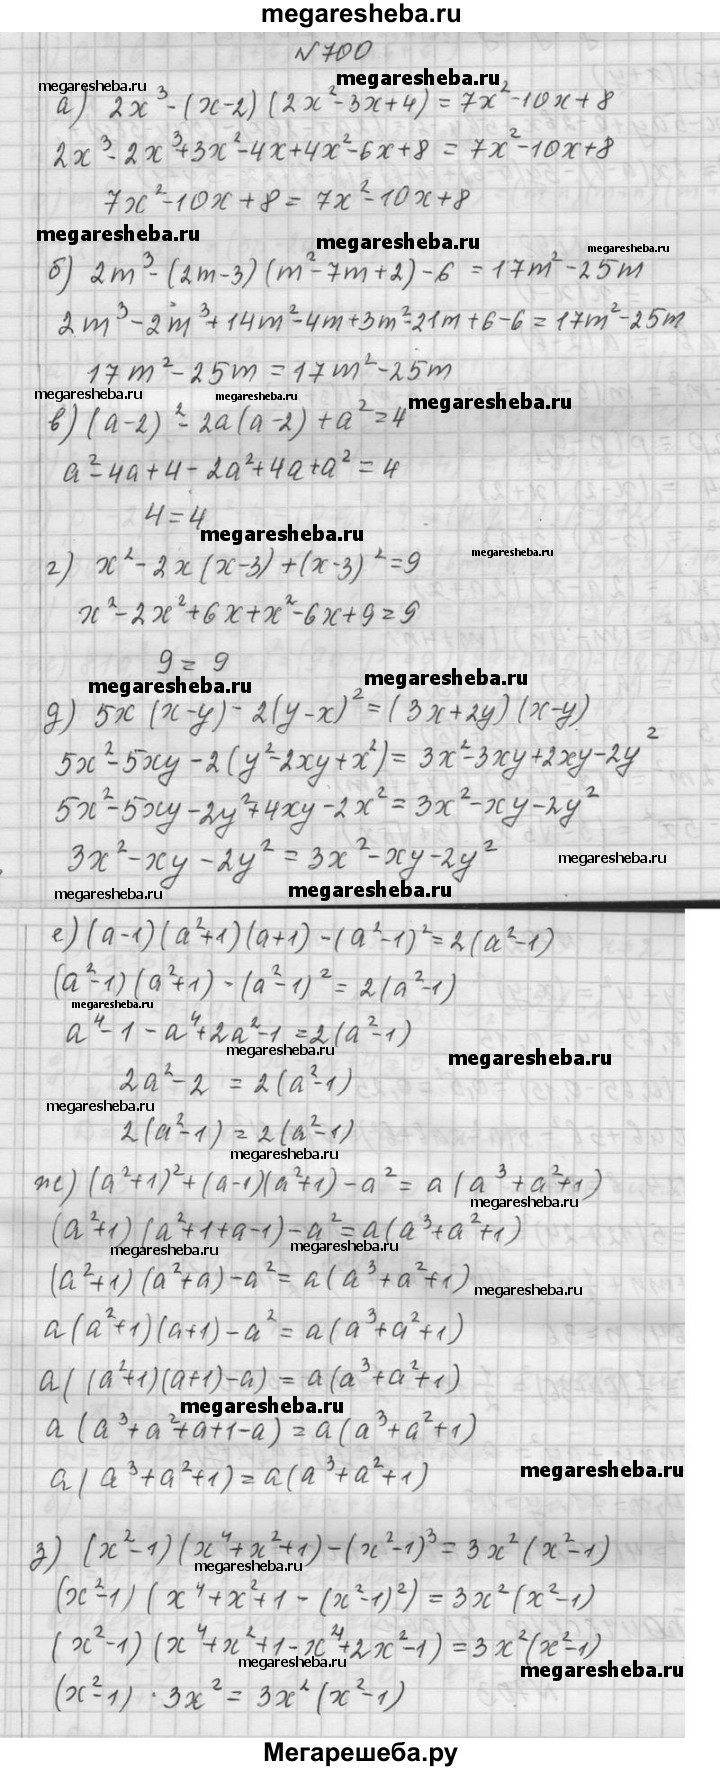 megaresheba.ru
№700
megaresheba.ru
megaresheba.ru
megaresheba.ru
а) 2x³-(x-2)(2x²-3x+4)=7x²-10x+8
2x³-2x³+3x²-4x+4x²-6x+8=7x²-10x+8
7x²-10x+8=7x²-10x+8
megaresheba.ru
megaresheba.ru
megaresheba.ru
б) 2m³-(2m-3)(m²-7m+2)-6=17m²-25m
2m³-2m³+14m²-4m+3m²-21m+6-6=17m²-25m
17m²-25m=17m²-25m
megaresheba.ru
megaresheba.ru
megaresheba.ru
в) (a-2)²-2a(a-2)+a²=4
a²-4a+4-2a²+4a+a²=4
4=4
megaresheba.ru
megaresheba.ru
г) x²-2x(x-3)+(x-3)²=9
x²-2x²+6x+x²-6x+9=9
9=9
megaresheba.ru
megaresheba.ru
д) 5x(x-y)-2(y-x)²=(3x+2y)(x-y)
5x²-5xy-2(y²-2xy+x²)=3x²-3xy+2xy-2y²
5x²-5xy-2y²+4xy-2x²=3x²-xy-2y²
3x²-xy-2y²=3x²-xy-2y²
megaresheba.ru
megaresheba.ru
megaresheba.ru
е) (a-1)(a²+1)(a+1)-(a²-1)²=2(a²-1)
(a²-1)(a²+1)-(a²-1)²=2(a²-1)
megaresheba.ru
a⁴-1-a⁴+2a²-1=2(a²-1)
megaresheba.ru
megaresheba.ru
2a²-2=2(a²-1)
megaresheba.ru
2(a²-1)=2(a²-1)
megaresheba.ru
ж) (a²+1)²+(a-1)(a²+1)-a²=a(a³+a²+1)
megaresheba.ru
(a²+1)(a²+1+a-1)-a²=a(a³+a²+1)
megaresheba.ru
megaresheba.ru
(a²+1)(a²+a)-a²=a(a³+a²+1)
megaresheba.ru
a(a²+1)(a+1)-a²=a(a³+a²+1)
a((a²+1)(a+1)-a)=a(a³+a²+1)
megaresheba.ru
a(a³+a²+a+1-a)=a(a³+a²+1)
a(a³+a²+1)=a(a³+a²+1)
megaresheba.ru
з) (x²-1)(x⁴+x²+1)-(x²-1)³=3x²(x²-1)
megaresheba.ru
(x²-1)(x⁴+x²+1-(x²-1)²)=3x²(x²-1)
(x²-1)(x⁴+x²+1-x⁴+2x²-1)=3x²(x²-1)
megaresheba.ru
megaresheba.ru
(x²-1)·3x²=3x²(x²-1)
Мегарешеба.ру